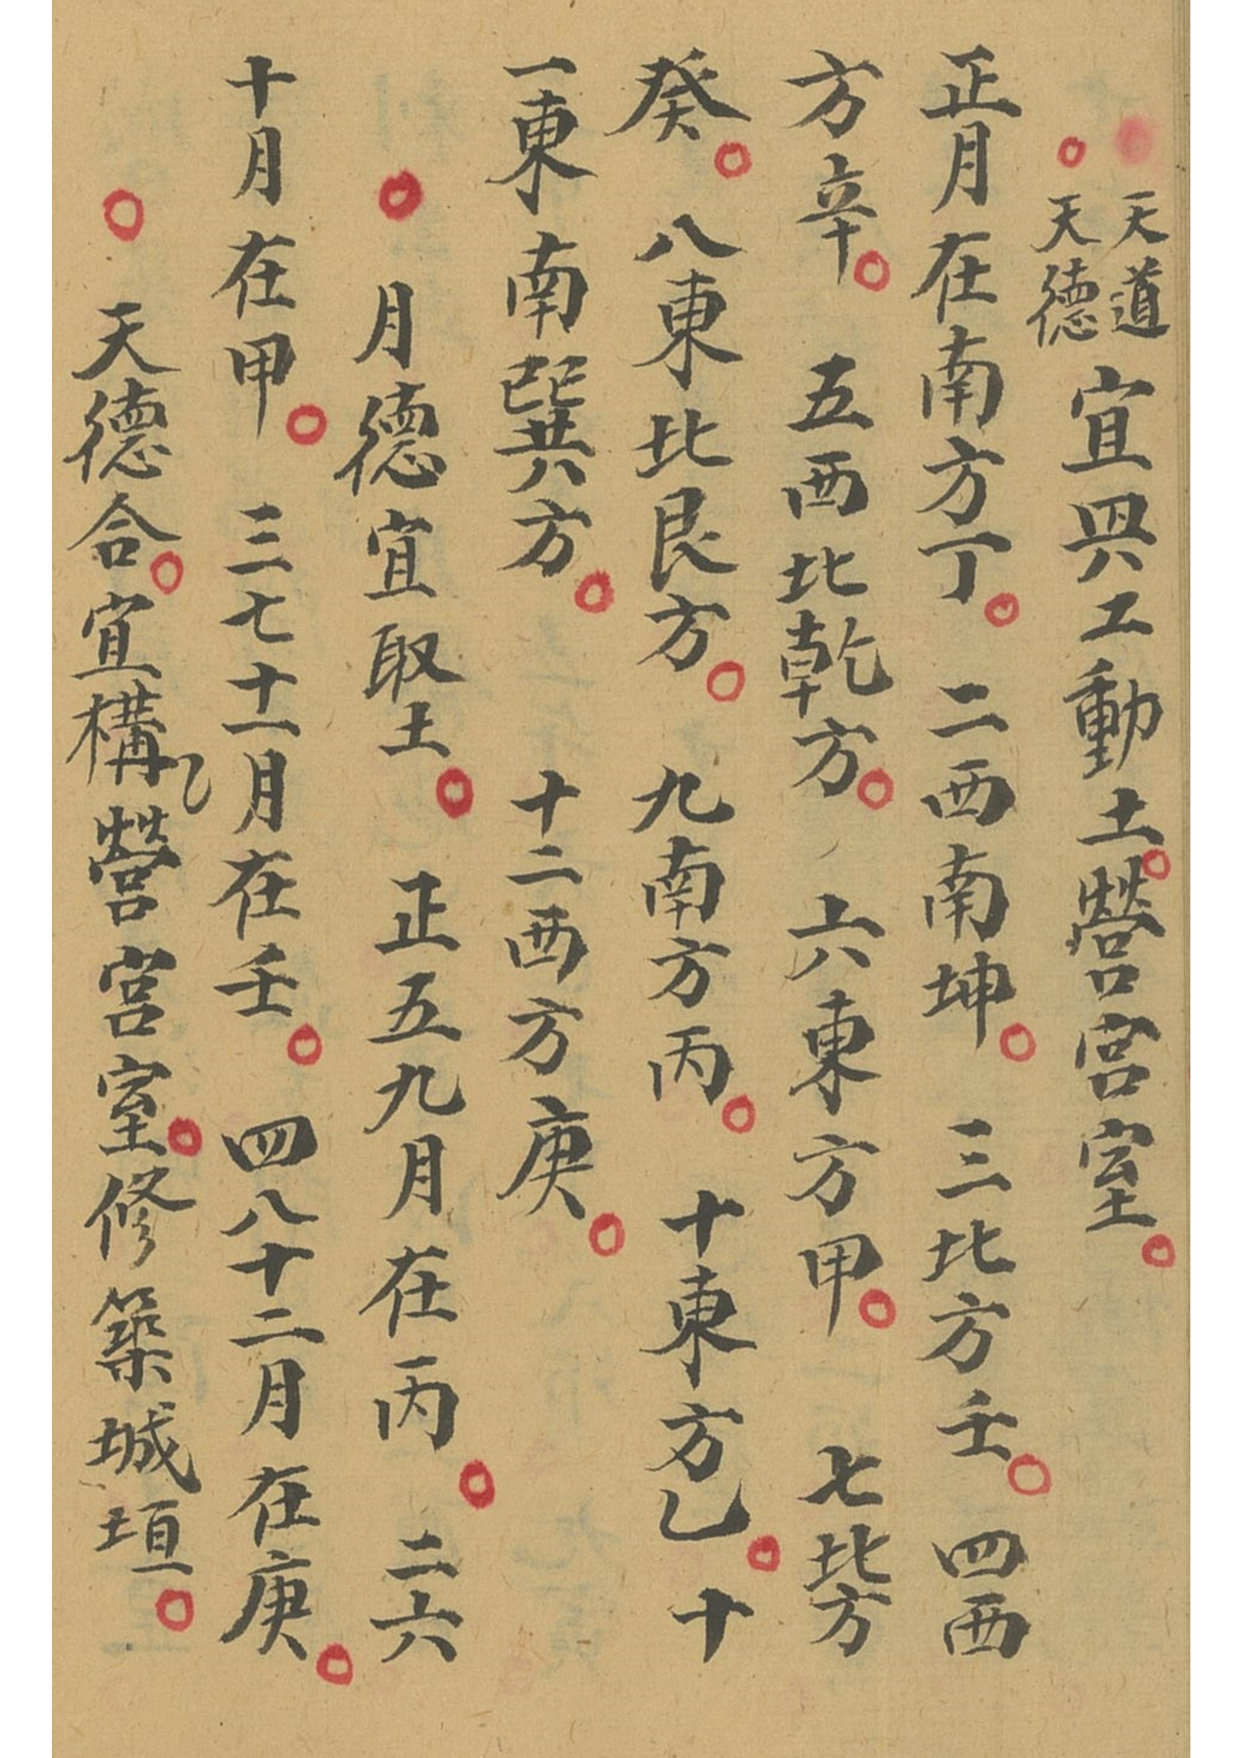 天道
天德
宜興工動土營宮室
正月在南方丁 二西南坤 三北方壬 四西
方辛 五西北乾方 六東方甲 七北方
癸 八東北艮方 九南方丙 十東方乙 十
一東南巽方 十二西方庚
月德宜取土 正五九月在丙 二六
十月在甲 三七十一月在壬 四八十二月在庚
天德合宜構營宮室修築城垣